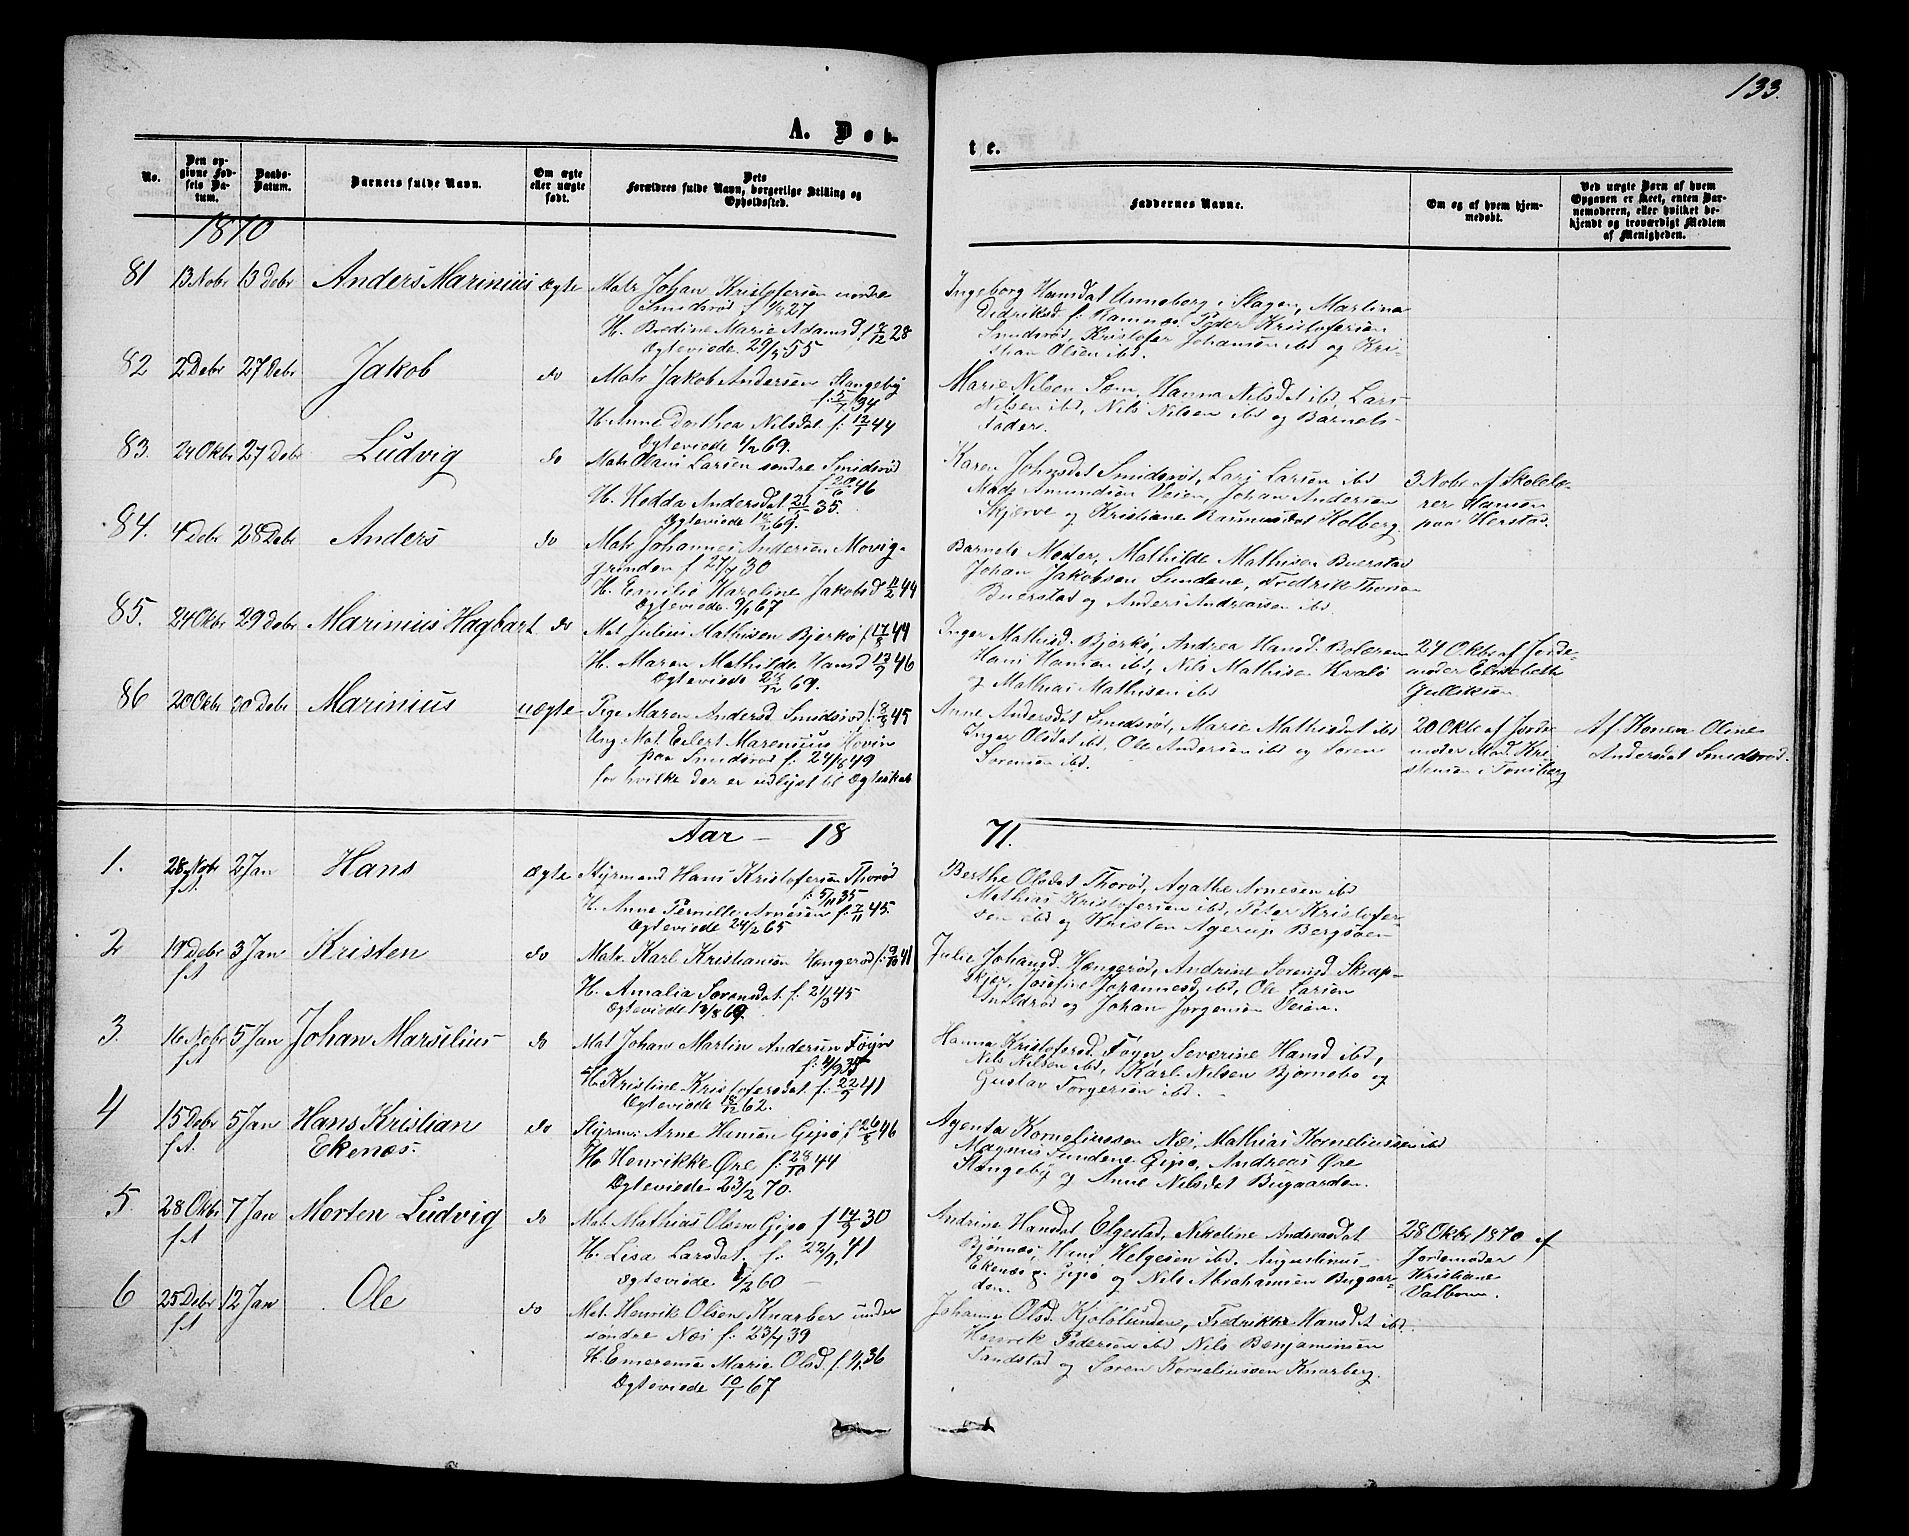 133.
A. Døb-
te.
No.
Den op-
givne Fød-
sels Da-
tum.
Daabs-
Datum.
Barnets fulde Navn.
Om ægte
eller uægte
født.
Dets
Forældres fulde Navn, borgerlige Stilling og
Opholdssted.
Faddernes Navne.
Om og af hvem hjem-
medøbt.
Ved uægte Børn af hvem
Opgaven er skeet, enten Bar-
nemoderen, eller hvilket be-
kjendt og troværdigt Medlem
af Menigheden.
1870
81 13 Nobr 13 Debr Anders Marinius Ægte
Matr Johan Kristofersen nordre
Smidsrød
H. Bredine Marie Adamsd f 28
Ægteviede 29/ 55
Ingeborg Hansdat Unneberg i Slagen, Martina
Didriksd f: Ramnæs. Peder Kristofersen
Smidsrød, Kristofer Johansen ibd og Kri-
stian Olsen ibd.
82 2 Debr 27 Debr Jakob do
Matr Jakob Andersen Stangeby
f: 5/7 34
H. Anne Dorthea Nilsdat f. 12/1 44
Ægteviede 69.
Marie Nilsen Sem, Hanna Nilsdat ibd, Lars
Nilsen ibd, Nils Nilsen ibd og Barnets
Fader.
83. 24 Okbr 27 Debr Ludvig do
Matr Olaus Larsen søndre Smidsrød
f 20/6 46
H. Hedda Andersdat 35.
Ægteviede 69.
Karen Johnsdat Smidsrød, Lars Larsen ibd
Mads Amundsen Veien, Johan Andersen
Skjerve og Kristiane Rasmusdat Kolberg.
3 Nobr af Skolelæ-
rer Hansen
paa Herstad.
84. 4 Debr 28 Debr Anders do
Matr Johannes Andersen Movig-
grinden f 27/ 30
H. Emilie Karoline Jakobsd 11/2 44
Ægteviede 67
Barnets Moder, Mathilde Mathisen Buerstad
Johan Jakobsen Sundene, Fredrik Thorsen
Buerstad og Anders Andreasen ibd.
85. 24 Okbr 29 Debr Marinius Hagbart do
Mat Julius Mathisen Bjerkø f 17/8 44
H. Maren Mathilde Hansd 46
Ægteviede 28/12 69.
Inger Mathisd. Bjerkø, Andrea Hansd Bolæren
Hans Hansen ibd, Nils Mathisen Hvalø
og Mathias Mathisen ibd
24 Okbr af Jorde-
moder Elisabeth
Gulliksen
86 20 Okbr 30 Debr Marinius uægte
Pige Maren Andersd. Smidsrød f: 45
Ung. Mat. Eilert Marenius Hovin
paa Smidsrød f. 24/8 49
for hvilke der er udlyst til Ægteskab
Anne Andersdat Smidsrød, Marie Mathisdat ibd
Inger Olsdat ibd, Ole Andersen ibd og Søren
Sørensen ibd.
20 Okbr af Jorde
moder Mad. Kri
stensen i Tønsberg
Af Konen Oline
Andersdat Smidsrød.
Aar — 18 71.
1. 28 Nobr 2 Jan Hans Ægte
f. A
Styrmand Hans Kristofersen Thorød
f. 5/11 35
H. Anne Pernille Arnesen f. 7/11 45.
Ægteviede 24/2 65
Berthe Olsdat Thorød, Agathe Arnesen ibd
Mathias Kristofersen ibd, Peter Kristofer-
sen ibd og Kristen Agerup Bergsøen
2 19 Debr 3 Jan Kristen do
f. A
Matr. Karl Kristiansen Hængerød f. 9/10 41
H. Amalia Sørensdat f: 45
Ægteviede 13/8 69.
Julie Johansd. Hængerød, Andrine Sørensd Skrap-
skjer, Josefine Johannesd ibd, Ole Larsen
og Johan Jørgensen Veien.
3. 16 Nobr 5 Jan Johan Marselius do
f. A
Mat Johan Martin Andersen Føyn
H. Kristine Kristofersdat f. 22/9 41
Ægteviede 18/12 62.
Hanna Kristofersd. Føyn, Severine Hansd ibd,
Nils Nilsen ibd, Karl Nilsen Bjørnebo og
Gustav Torgersen ibd.
4 15 Debr 5 Jan Hans Kristian do
f. A. Ekenæs.
Styrm: Arne Hansen Gipø f 26/8 46
H. Henrikke Øre f. 28/10 44
Ægteviede 23/2 70.
Agenta Korneliussen Næs, Mathias Korneliussen ibd
Magnus Sundene Gipø, Andreas Øre
Stangeby og Anne Nilsdat Bugaarden.
5. 28 Okbr 7 Jan Morten Ludvig do
f. A
Mat. Mathias Olsen Gipø f 17/9 30
H. Lisa Larsdat f. 22/9 41
Ægteviede 1/2 60
Andrine Hansdat Elgestad, Nikoline Andreasdat
Bjønnæs, Hans Helgesen ibd. Augustinus
Ekenæs p. Gipø og Nils Abrahamsen Bugaar-
den.
28 Okbr 1870 af
Jordemoder
Kristiane
Valbom.
6 25 Debr 12 Jan Ole do
f. A
Mat. Henrik Olsen Knarber under
søndre Næs f: 23/7 39
H. Emerense Marie Olsd. f. 36
Ægteviede 10/1 67
Johanne Olsd. Kjølølunden, Fredrikke Hansdat ibd.
Henrik Pedersen ibd Nils Benjaminsen
Sandstad og Søren Korneliussen Knarberg.